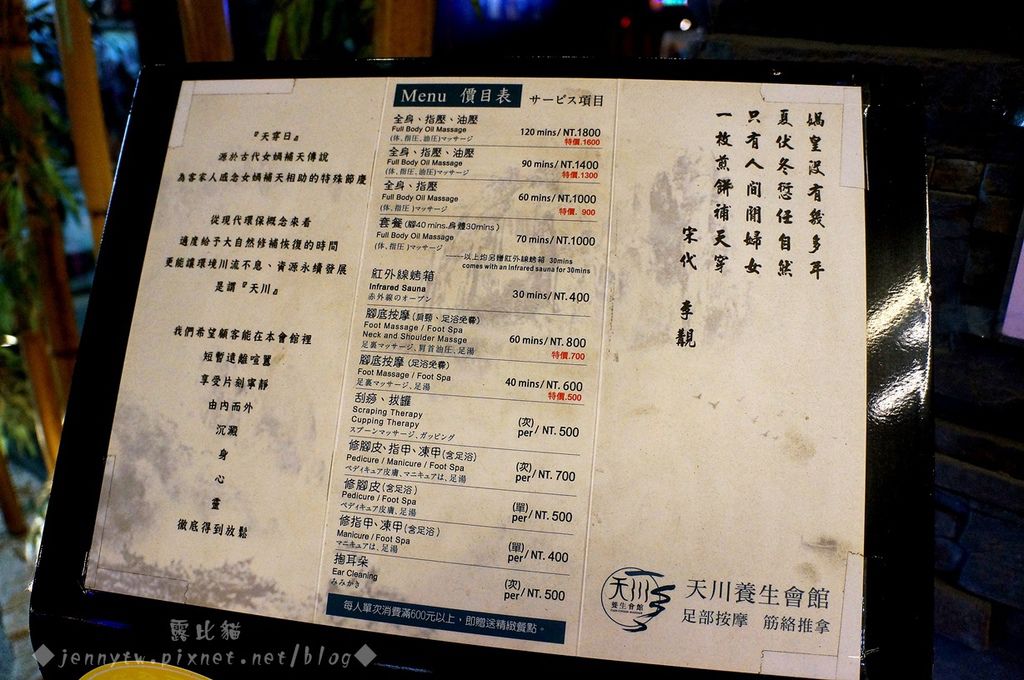 『天穿日』
源於古代女媧補天傳說
為客家人感念女媧補天相助的特殊節慶
從現代環保概念來看
適度給予大自然修補恢復的時間
更能讓環境川流不息、資源永續發展
是謂『天川』
我們希望顧客能在本會館裡
短暫遠離喧囂
享受片刻寧靜
由內而外
沉澱
身
心
靈
徹底得到放鬆
Menu 價目表 サービス項目
全身、指壓、油壓
Full Body Oil Massage
120 mins/ NT.1800
(体、指圧、油圧)マッサージ
特價.1600
全身、指壓、油壓
Full Body Oil Massage
90 mins/ NT.1400
(体、指圧、油圧)マッサージ
特價.1300
全身、指壓
Full Body Oil Massage
60 mins/NT.1000
(体、指圧)マッサージ
特價. 900
套餐(腳40mins.身體30mins)
Full Body Oil Massage
70 mins/ NT.1000
(体、指圧)マッサージ
——以上均另贈紅外線烤箱 30mins
comes with an infrared sauna for 30mins
紅外線烤箱
Infrared Sauna
30 mins/ NT.400
赤外線のオーブン
腳底按摩(肩頸、足浴免費)
Foot Massage / Foot Spa
Neck and Shoulder Massge
60 mins/ NT.800
足裏マッサージ、肩首油圧、足湯
特價.700
腳底按摩(足浴免費)
Foot Massage / Foot Spa
40 mins/ NT.600
足裏マッサージ、足湯
特價.500
刮痧、拔罐
Scraping Therapy
Cupping Therapy
(次)
per / NT. 500
スプーンマッサージ、ガッピング
修腳皮、指甲、凍甲(含足浴)
Pedicure / Manicure / Foot Spa
(次)
per / NT. 700
ペディキュア皮膚、マニキュアは、足湯
修腳皮(含足浴)
Pedicure / Foot Spa
(單)
per/ NT. 500
ペディキュア皮膚、足湯
修指甲、凍甲(含足浴)
Manicure / Foot Spa
(單)
per / NT. 400
マニキュアは、足湯
掏耳朵
Ear Cleaning
(次)
per / NT. 500
みみかき
每人單次消費滿600元以上，即贈送精緻餐點。
媧皇沒有幾多年
夏伏冬愆任自然
只有人間閒婦女
一枚煎餅補天穿
宋代 李覯
天川
養生會館
天川養生會館
足部按摩 筋絡推拿
露比貓
◆jennytw.pixnet.net/blog◆